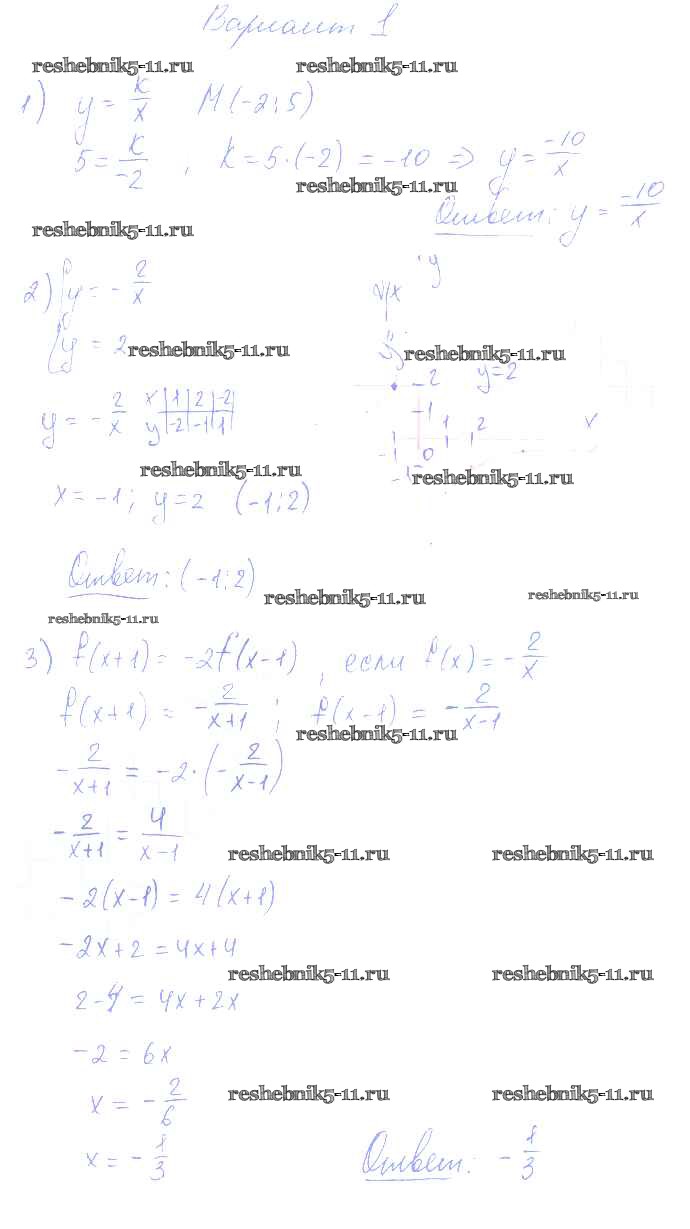 Вариант 1
reshebnik5-11.ru reshebnik5-11.ru
1) y = k/x M(-2; 5)
5 = k/-2 , k = 5·(-2) = -10 => y = -10/x
reshebnik5-11.ru
Ответ: y = -10/x
reshebnik5-11.ru
y
2) { y = -2/x
x
{ y = 2
reshebnik5-11.ru reshebnik5-11.ru
2 y=2
y = -2/x x | 1 | 2 | -2
y | -2 | -1 | 1
-1 1 2 x
-1 0
reshebnik5-11.ru reshebnik5-11.ru
-1
x = -1; y = 2 (-1; 2)
Ответ: (-1; 2)
reshebnik5-11.ru reshebnik5-11.ru
reshebnik5-11.ru
3) f(x+1) = -2f(x-1) , если f(x) = -2/x
f(x+1) = -2/x+1 ; f(x-1) = -2/x-1
reshebnik5-11.ru
-2/x+1 = -2·(-2/x-1)
-2/x+1 = 4/x-1
reshebnik5-11.ru reshebnik5-11.ru
-2(x-1) = 4(x+1)
-2x+2 = 4x+4
reshebnik5-11.ru reshebnik5-11.ru
2-4 = 4x+2x
-2 = 6x
x = -2/6
reshebnik5-11.ru reshebnik5-11.ru
x = -1/3 Ответ: -1/3